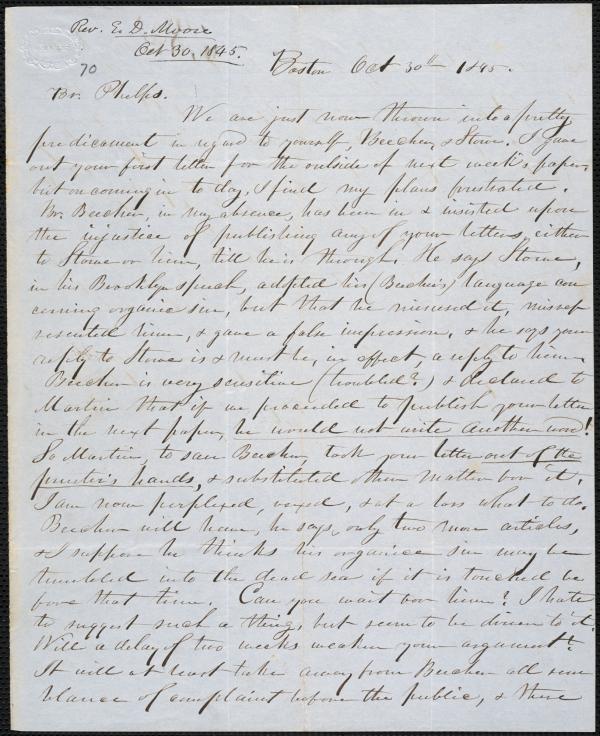 Rev. E. D. Moore
Oct 30, 1845.
70
Boston Oct 30th 1845.
Br. Phelps.
We are just now thrown into a pretty
predicament in regard to yourself, Beecher, & Stowe. I gave
out your first letter for the outside of next week's paper,
but on coming in to day, I find my plans frustrated.
Br. Beecher, in my absence, has been in & insisted upon
the injustice of publishing any of your letters, either
to Stowe or him, till he is through. He says Stowe,
in his Brooklyn speech, adopted his (Beecher's) language con
cerning organic sin, but that he misused it, misrep
resented him, & gave a false impression, & he says your
reply to Stowe is & must be, in effect, a reply to him.
Beecher is very sensitive (troubled?) & declared to
Martin that if we proceeded to publish your letter
in the next paper, he would not write another word!
So Martin, to save Beecher, took your letter out of the
printer's hands, & substituted other matter for it.
I am now perplexed, vexed, & at a loss what to do.
Beecher will have, he says, only two more articles,
& I suppose he thinks his organic sin may be
tumbled into the dead sea if it is touched be
fore that time. Can you wait for him? I hate
to suggest such a thing, but seem to be driven to it.
Will a delay of two weeks weaken your argument?
It will at least take away from Beecher all sem
blance of complaint before the public, & these